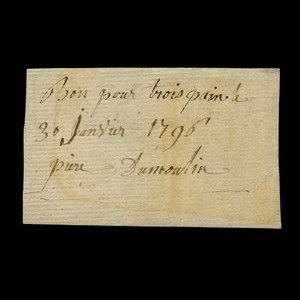 Bon pour trois pain à
30 Janvier 1796
pire Dumoulin